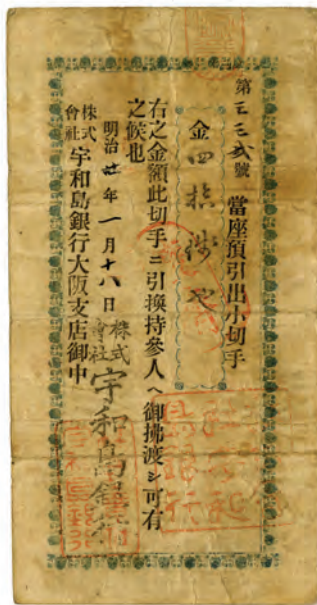 第三三弐號 當座預引出小切手
金四拾
右之金額此切手ニ引換持參人ヘ御拂渡シ可有
之候也
明治廿年一月十八日 株式會社宇和島銀行
株式會社宇和島銀行大阪支店御中